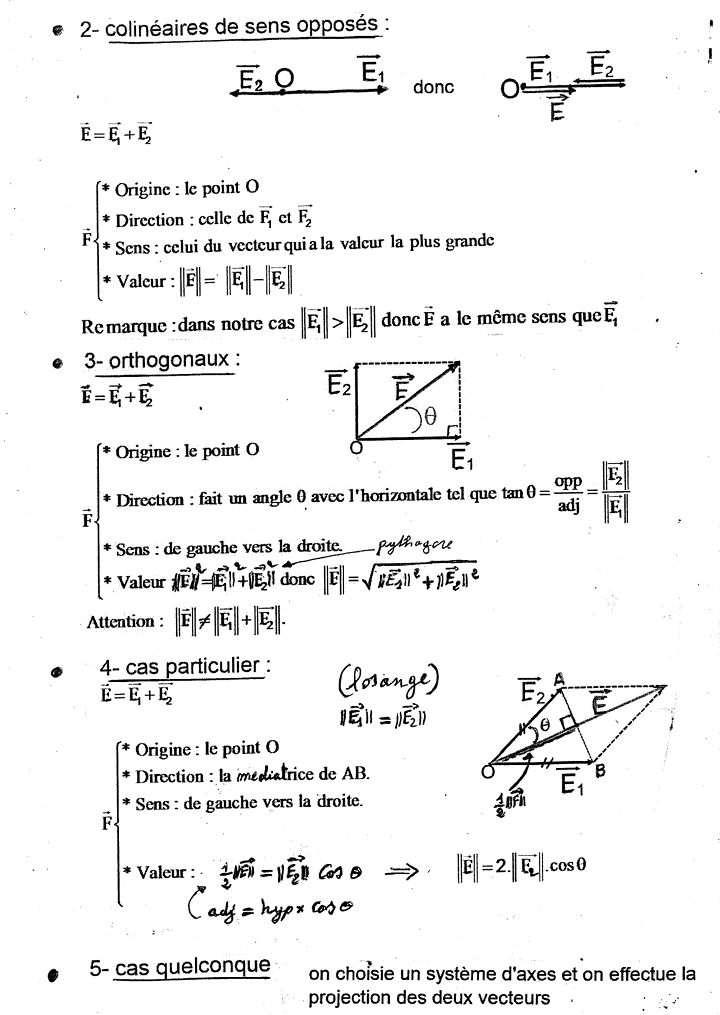 2- colinéaires de sens opposés :
E₂ O E₁ donc O E₁ E₂
E
E = E₁ + E₂
* Origine : le point O
* Direction : celle de F₁ et F₂
F
* Sens : celui du vecteur qui a la valeur la plus grande
* Valeur : ||E|| = ||E₁|| − ||E₂||
Remarque : dans notre cas ||E₁|| > ||E₂|| donc E a le même sens que E₁
3- orthogonaux :
E₂ E θ
E = E₁ + E₂
O E₁
* Origine : le point O
* Direction : fait un angle θ avec l'horizontale tel que tan θ = opp/adj = ||E₂||/||E₁||
F
* Sens : de gauche vers la droite. pythagore
* Valeur ||E||² = ||E₁||² + ||E₂||² donc ||F|| = √||E₁||² + ||E₂||²
Attention : ||F|| ≠ ||E₁|| + ||E₂||.
4- cas particulier :
E = E₁ + E₂
(losange)
||E₁|| = ||E₂||
E₂ A E
θ
O E₁ B
½ ||F||
* Origine : le point O
* Direction : la mediatrice de AB.
* Sens : de gauche vers la droite.
F
* Valeur : ½ ||E|| = ||E₂|| cos θ ⟹ ||E|| = 2.||E₂||.cos θ
adj = hyp x cos θ
5- cas quelconque
on choisie un système d'axes et on effectue la
projection des deux vecteurs